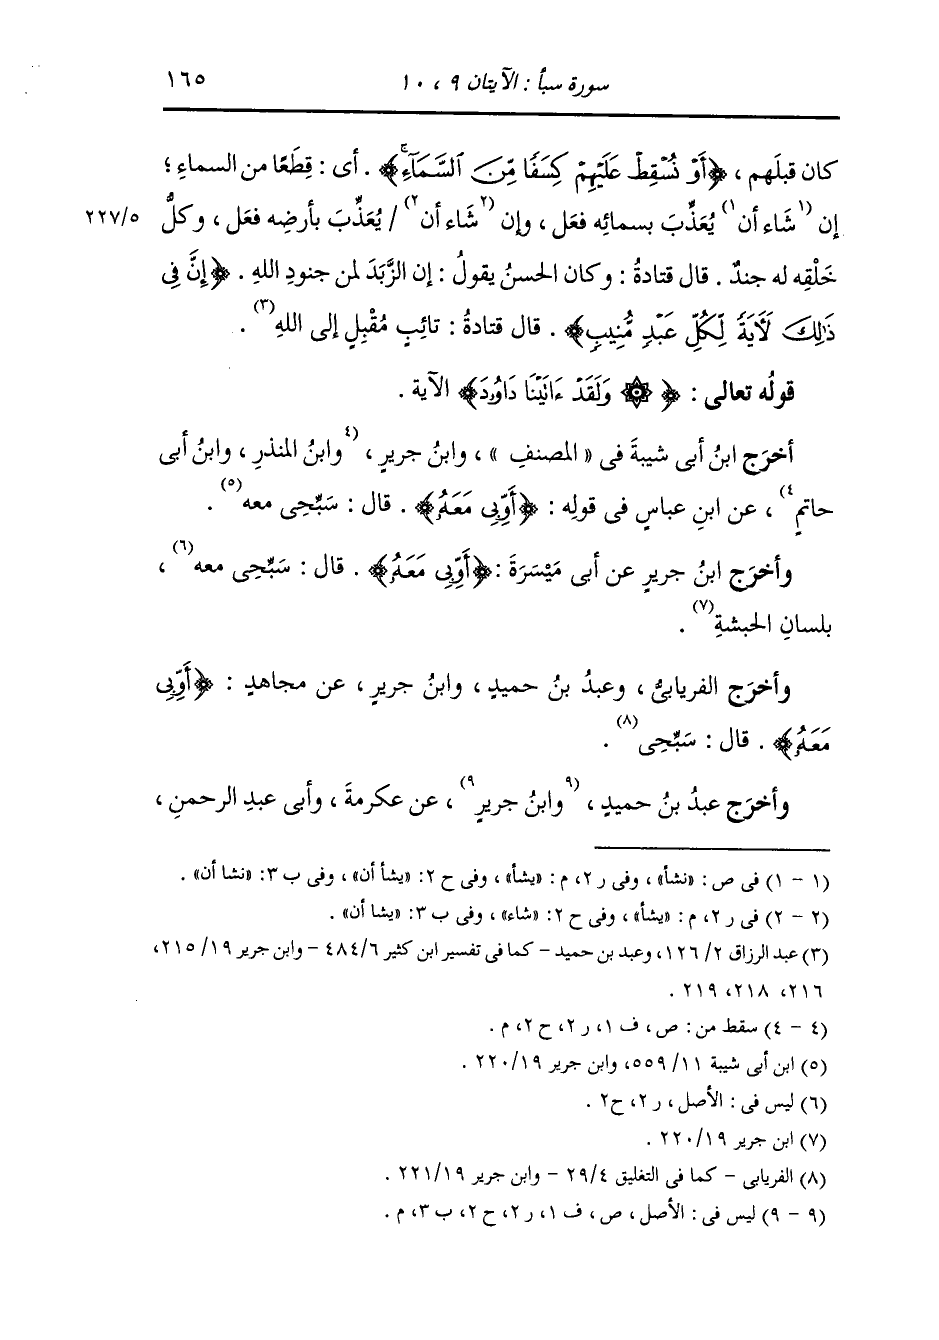 سورة سبأ : الآيتان ٩ ، ١٠ ١٦٥
كان قبلَهم ، ﴿أَوْ نُسْقِطْ عَلَيْهِمْ كِسَفًا مِّنَ ٱلسَّمَآءِۚ﴾ . أى : قِطَعًا من السماءِ ؛
إن (١شَاء أن١) يُعَذِّبَ بسمائِه فعَل ، وإن (٢شَاء أن٢) / يُعَذِّبَ بأرضِه فعَل ، وكلُّ ٢٢٧/٥
خَلْقِه له جندٌ . قال قتادةُ : وكان الحسنُ يقولُ : إن الزَّبَدَ لمن جنودِ اللهِ . ﴿إِنَّ فِى
ذَٰلِكَ لَأَيَةً لِّكُلِّ عَبْدٍ مُّنِيبٍ﴾ . قال قتادةُ : تائبٍ مُقْبِلٍ إلى اللهِ(٣) .
قولُه تعالى : ﴿ ۞ وَلَقَدْ ءَاتَيْنَا دَاوُۥدَ﴾ الآية .
أخرَج ابنُ أبى شيبةَ فى « المصنفِ » ، وابنُ جريرٍ ، (٤وابنُ المنذرِ ، وابنُ أبى
حاتمٍ٤) ، عن ابنِ عباسٍ فى قولِه : ﴿أَوِّبِى مَعَهُۥ﴾ . قال : سَبِّحِى معه(٥) .
وأخرَج ابنُ جريرٍ عن أبى مَيْسَرَةَ : ﴿أَوِّبِى مَعَهُۥ﴾ . قال : سَبِّحِى معه(٦) ،
بلسانِ الحبشةِ(٧) .
وأخرَج الفريابىُّ ، وعبدُ بنُ حميدٍ ، وابنُ جريرٍ ، عن مجاهدٍ : ﴿أَوِّبِى
مَعَهُۥ﴾ . قال : سَبِّحِى(٨) .
وأخرَج عبدُ بنُ حميدٍ ، (٩وابنُ جريرٍ٩) ، عن عكرمةَ ، وأبى عبدِ الرحمنِ ،
(١ - ١) فى ص : «نشأ» ، وفى ر ٢، م : «يشأ» ، وفى ح ٢: «يشأ أن» ، وفى ب ٣: «نشا أن» .
(٢ - ٢) فى ر ٢، م : «يشأ» ، وفى ح ٢: «شاء» ، وفى ب ٣: «يشا أن» .
(٣) عبد الرزاق ٢/ ١٢٦، وعبد بن حميد - كما فى تفسير ابن كثير ٤٨٤/٦ - وابن جرير ١٩/ ٢١٥،
٢١٦، ٢١٨، ٢١٩ .
(٤ - ٤) سقط من : ص ، ف ١، ر ٢، ح ٢، م .
(٥) ابن أبى شيبة ١١/ ٥٥٩، وابن جرير ٢٢٠/١٩ .
(٦) ليس فى : الأصل ، ر ٢، ح٢ .
(٧) ابن جرير ٢٢٠/١٩ .
(٨) الفريابى - كما فى التغليق ٢٩/٤ - وابن جرير ٢٢١/١٩ .
(٩ - ٩) ليس فى : الأصل ، ص ، ف ١، ر ٢، ح ٢، ب ٣، م .